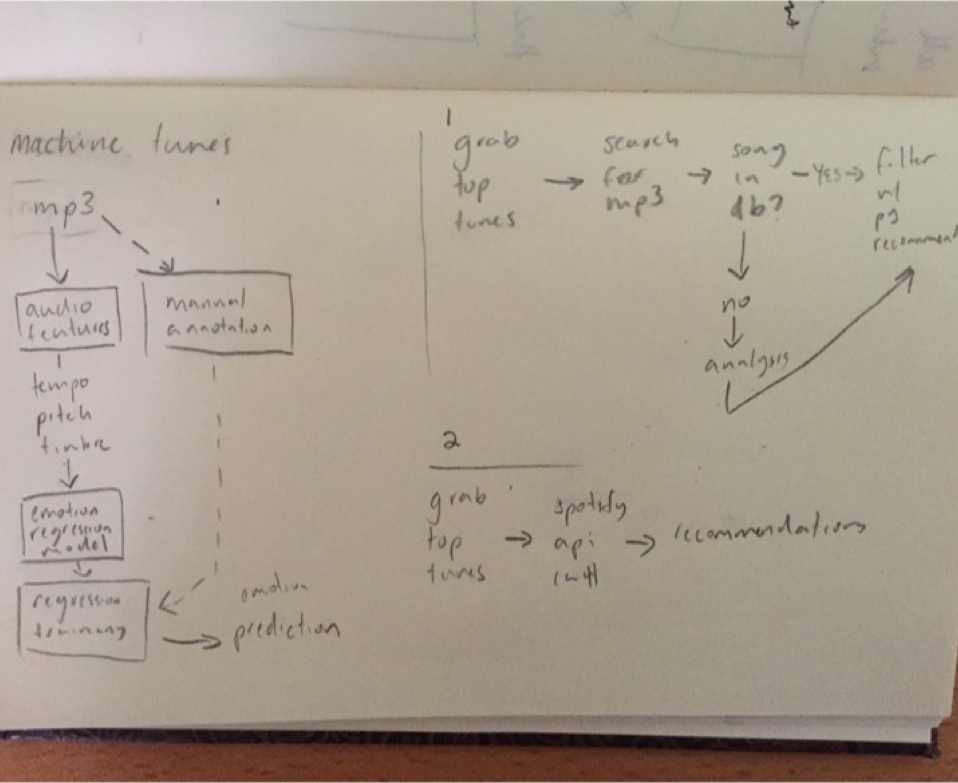 machine tunes
mp3
audio
features
manual
annotation
tempo
pitch
timbre
emotion
regression
model
regression
training
emotion
prediction
1
grab
top
tunes
search
for
mp3
song
in
db?
yes
filter
recommend
no
analysis
2
grab
top
tunes
spotify
api
recommendations